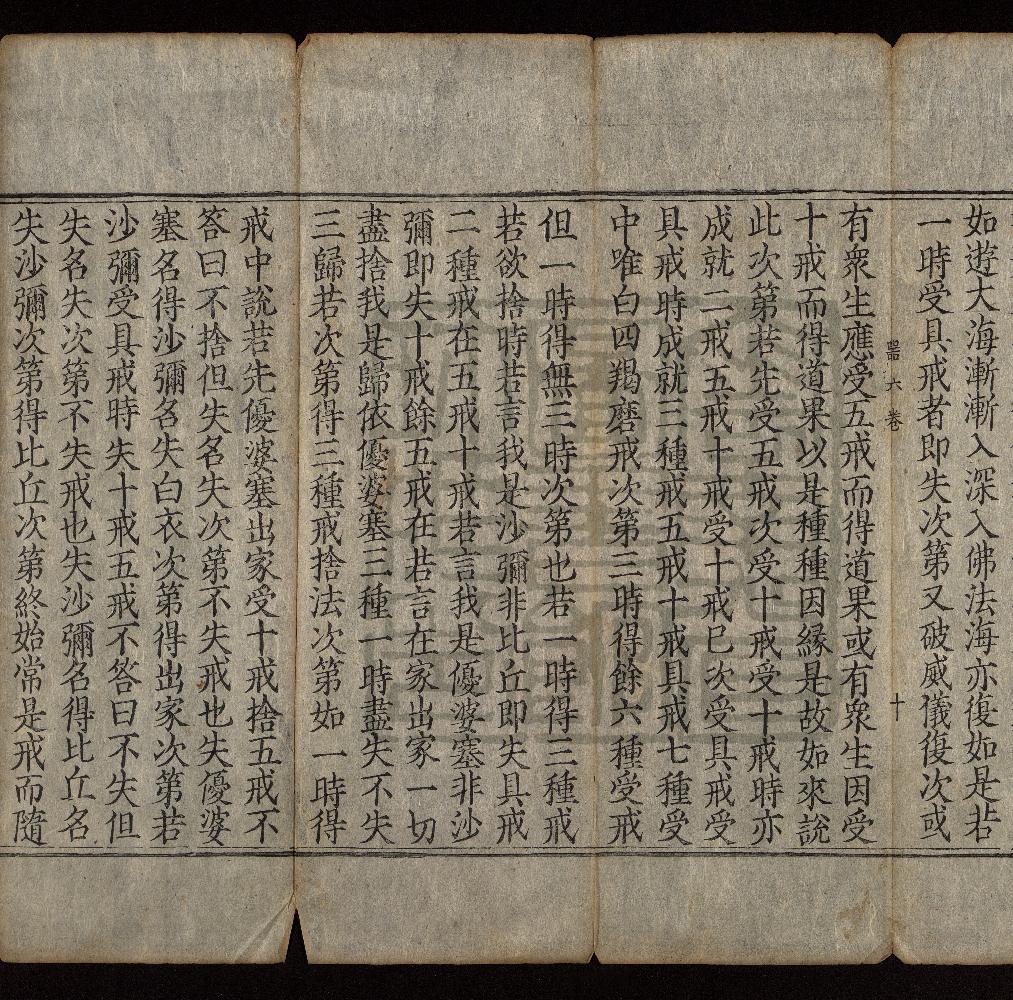 如遊大海漸漸入深入佛法海亦復如是若
一時受具戒者即失次第又破威儀復次或
噐 六 卷 十
有衆生應受五戒而得道果或有衆生因受
十戒而得道果以是種種因緣是故如來說
此次第若先受五戒次受十戒受十戒時亦
成就二戒五戒十戒受十戒已次受具戒受
具戒時成就三種戒五戒十戒具戒七種受
中唯白四羯磨戒次第三時得餘六種受戒
但一時得無三時次第也若一時得三種戒
若欲捨時若言我是沙彌非比丘即失具戒
二種戒在五戒十戒若言我是優婆塞非沙
彌即失十戒餘五戒在若言在家出家一切
盡捨我是歸依優婆塞三種一時盡失不失
三歸若次第得三種戒捨法次第如一時得
戒中說若先優婆塞出家受十戒捨五戒不
答曰不捨但失名失次第不失戒也失優婆
塞名得沙彌名失白衣次第得出家次第若
沙彌受具戒時失十戒五戒不答曰不失但
失名失次第不失戒也失沙彌名得比丘名
失沙彌次第得比丘次第終始常是戒而隨